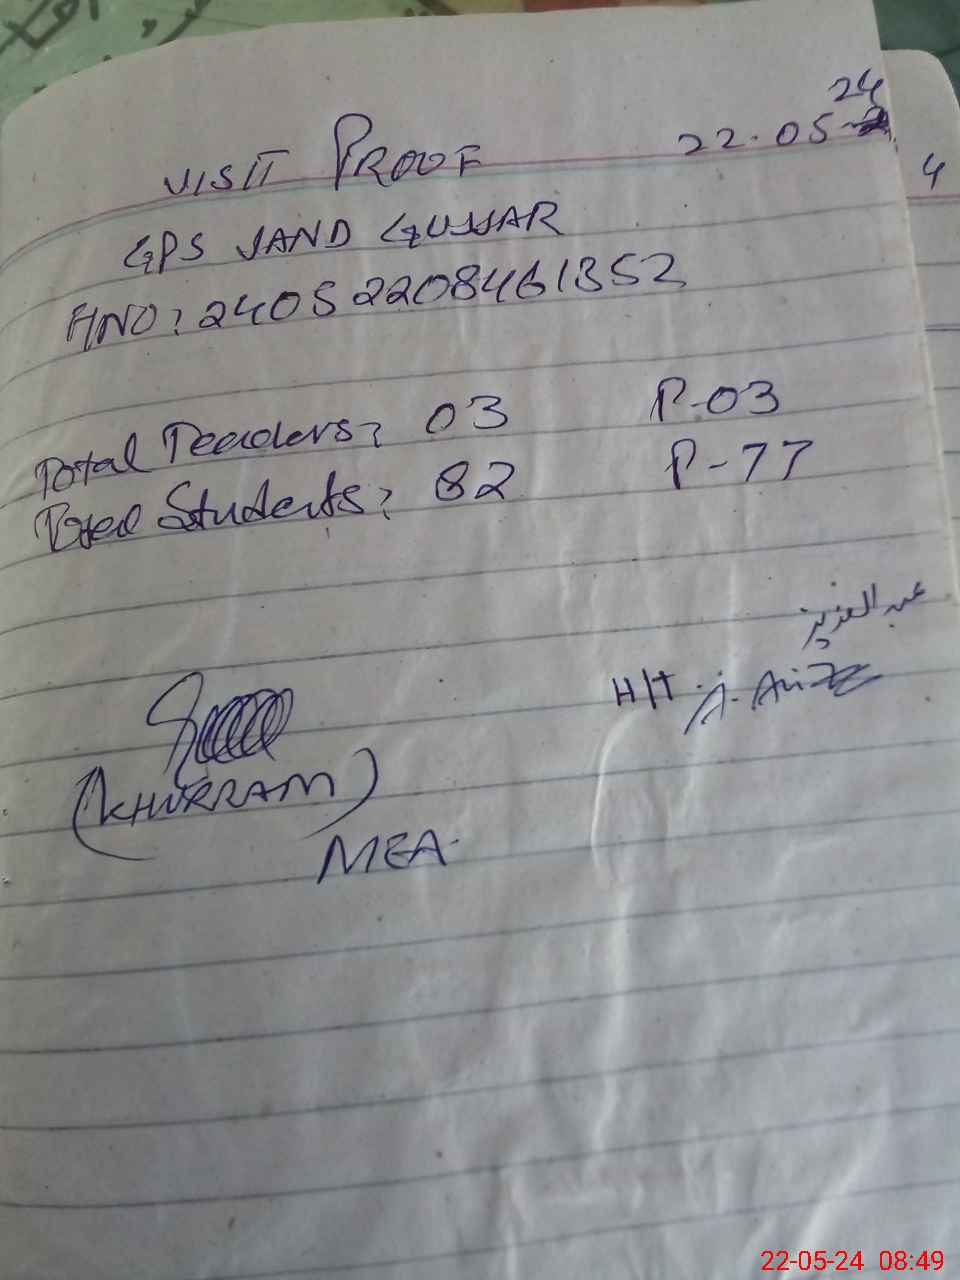 VISIT PROOF 22-05-24
4
GPS JAND GUJJAR
HNO: 240522084461352
Total Teachers: 03 P-03
Total Students: 82 P-77
عبدالعزیز
H/T A. Aziz
(KHURRAM)
MEA
22-05-24 08:49